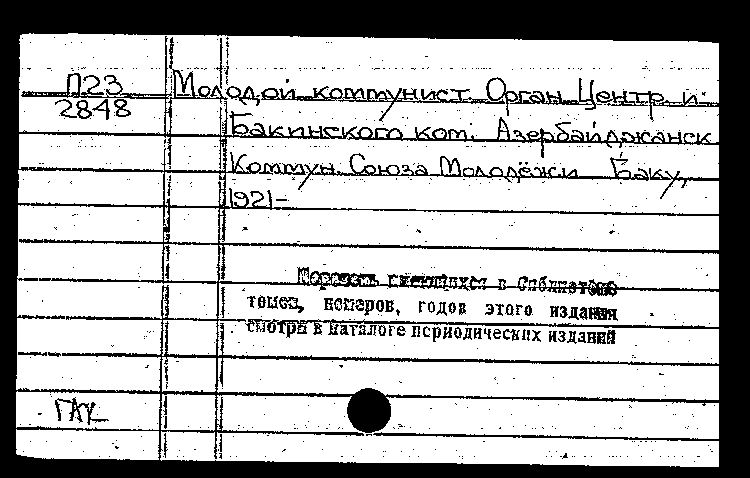 П23
2848
Молодой коммунист. Орган Центр. и
Бакинского ком. Азербайджанск.
Коммун. Союза Молодёжи. Баку,
1921-
Перечень имеющихся в библиотеке
томов, номеров, годов этого издания
смотри в каталоге периодических изданий
ГАК